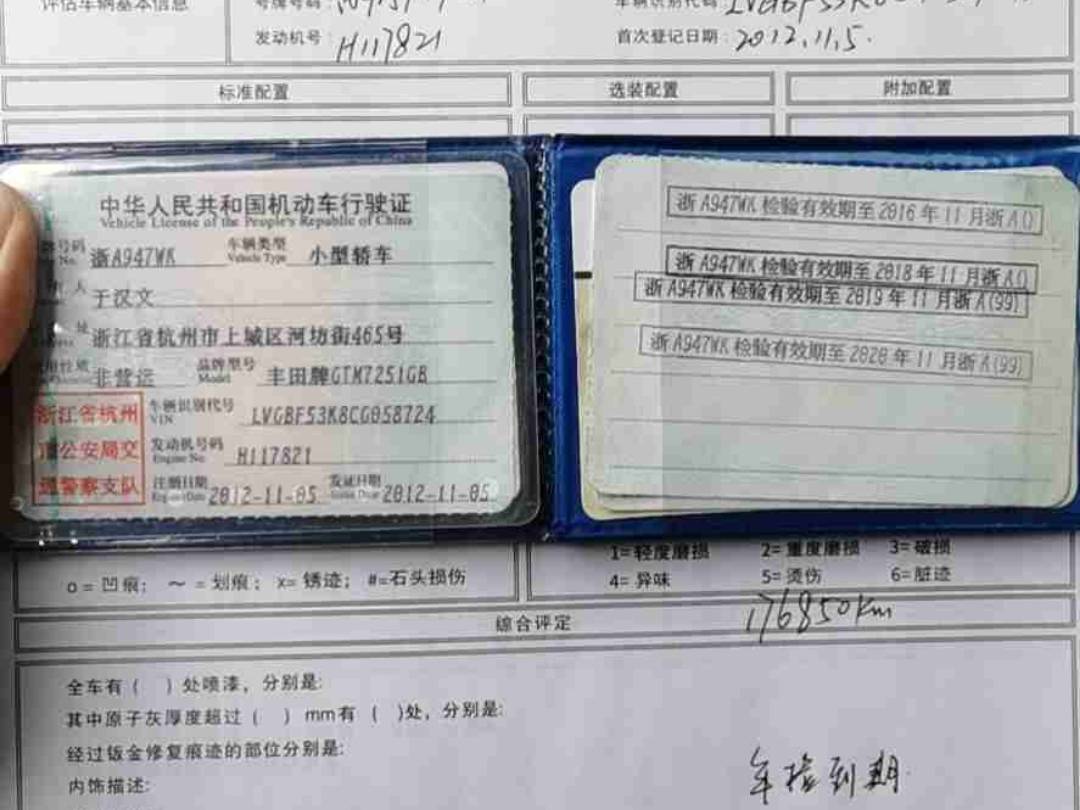 评估车辆基本信息
号牌号码:
车辆识别代码: LVGBF53K8
发动机号: H117821
首次登记日期: 2012.11.5.
标准配置
选装配置
附加配置
中华人民共和国机动车行驶证
Vehicle License of the People's Republic of China
号码 浙A947WK 车辆类型 小型轿车
No. Vehicle Type
人 于汉文
址 浙江省杭州市上城区河坊街465号
使用性质 非营运 品牌型号 丰田牌GTM7251GB
Model
浙江省杭州
市公安局交
通警察支队
车辆识别代号 LVGBF53K8CG058724
VIN
发动机号码 H117821
Engine No.
注册日期 2012-11-05 发证日期 2012-11-05
Register Date Issue Date
浙A947WK 检验有效期至2016年11月浙A()
浙A947WK 检验有效期至2018年11月浙A()
浙A947WK 检验有效期至2019年11月浙A(99)
浙A947WK 检验有效期至2020年11月浙A(99)
o=凹痕; ~=划痕; x=锈迹; #=石头损伤
1=轻度磨损 2=重度磨损 3=破损
4=异味 5=烫伤 6=脏迹
综合评定
176850km
全车有( )处喷漆，分别是:
其中原子灰厚度超过( )mm有( )处，分别是:
经过钣金修复痕迹的部位分别是:
内饰描述:
年检到期